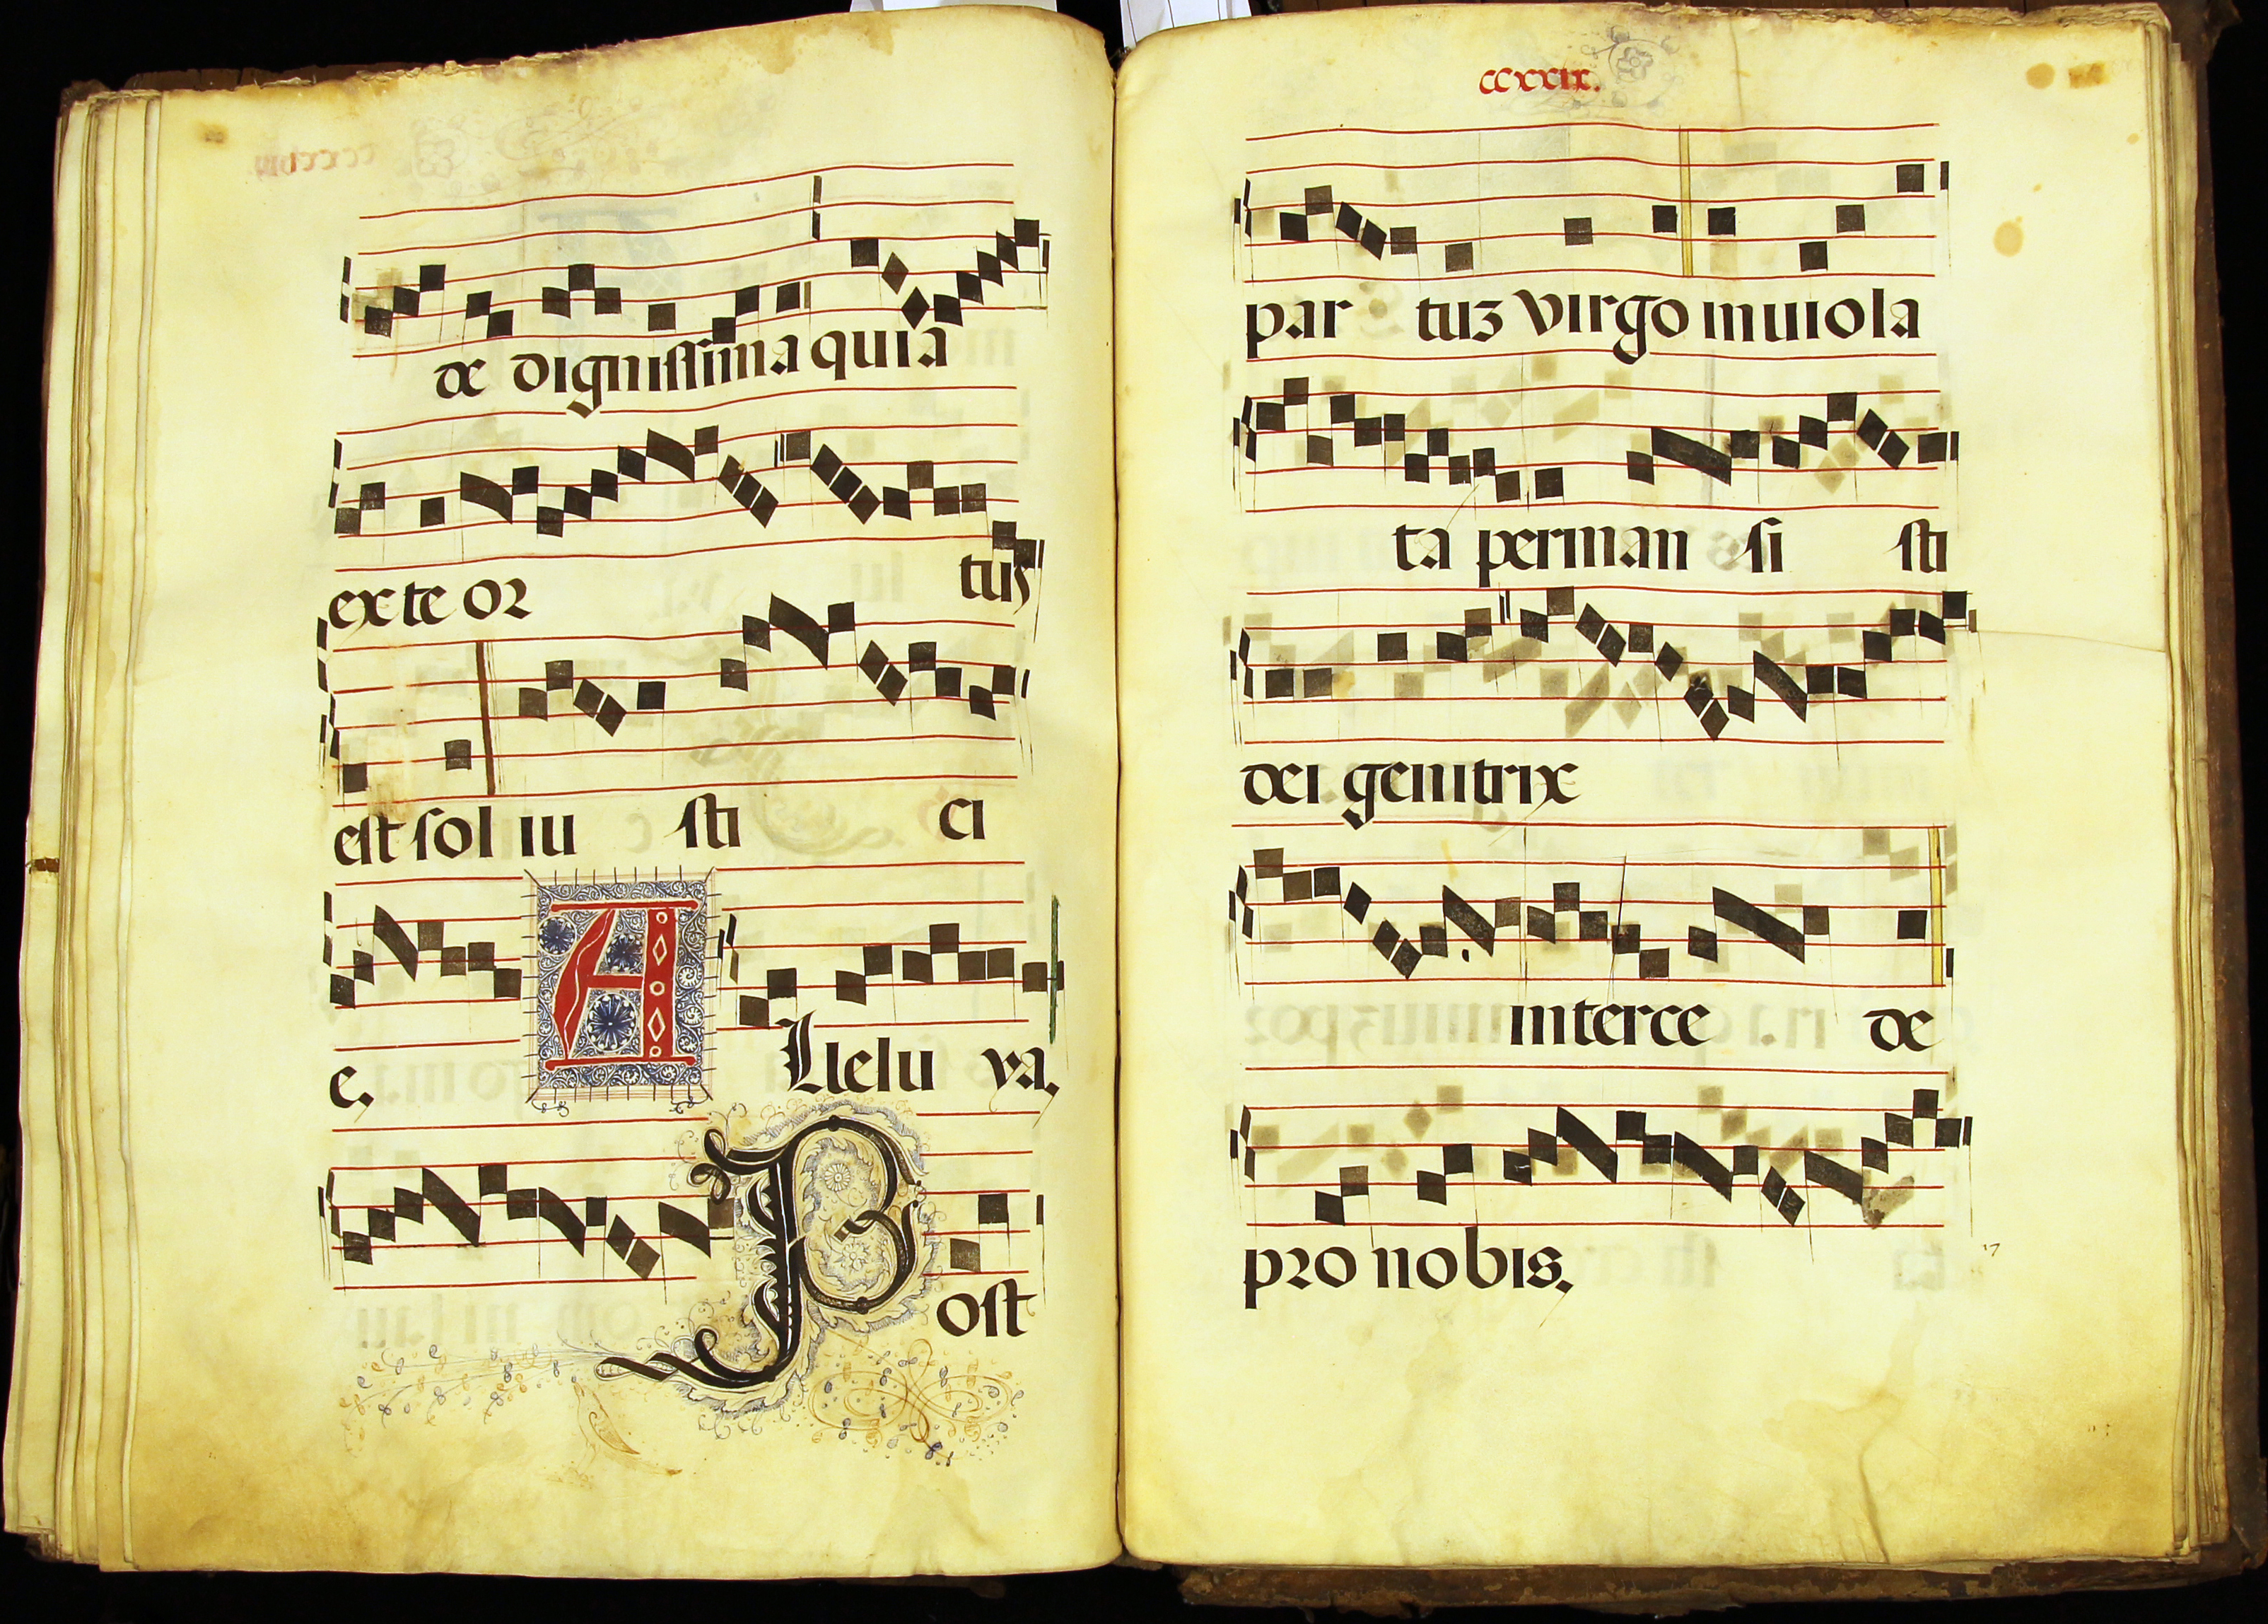 de dignissima quia
ex te or tus
est sol iu sti ci
e. A llelu ya.
P ost
ccxxix.
par tuz virgo inuiola
ta perman si sti
dei genitrix
interce de
pro nobis.
17